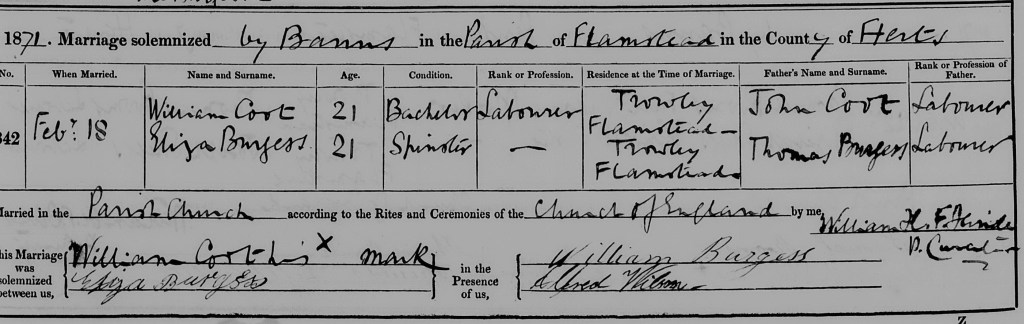 1871. Marriage solemnized by Banns in the Parish of Flamstead in the County of Herts
No. When Married. Name and Surname. Age. Condition. Rank or Profession. Residence at the Time of Marriage. Father's Name and Surname. Rank or Profession of Father.
642 Feby. 18 William Coot 21 Bachelor Labourer Trowley Flamstead John Coot Labourer
Eliza Burgess 21 Spinster — Trowley Flamstead Thomas Burgess Labourer
Married in the Parish Church according to the Rites and Ceremonies of the Church of England by me, William H. F.
P. Curate
This Marriage was solemnized between us,
William Coot his X mark
Eliza Burgess
in the Presence of us,
William Burgess
Alfred Wilson
Z